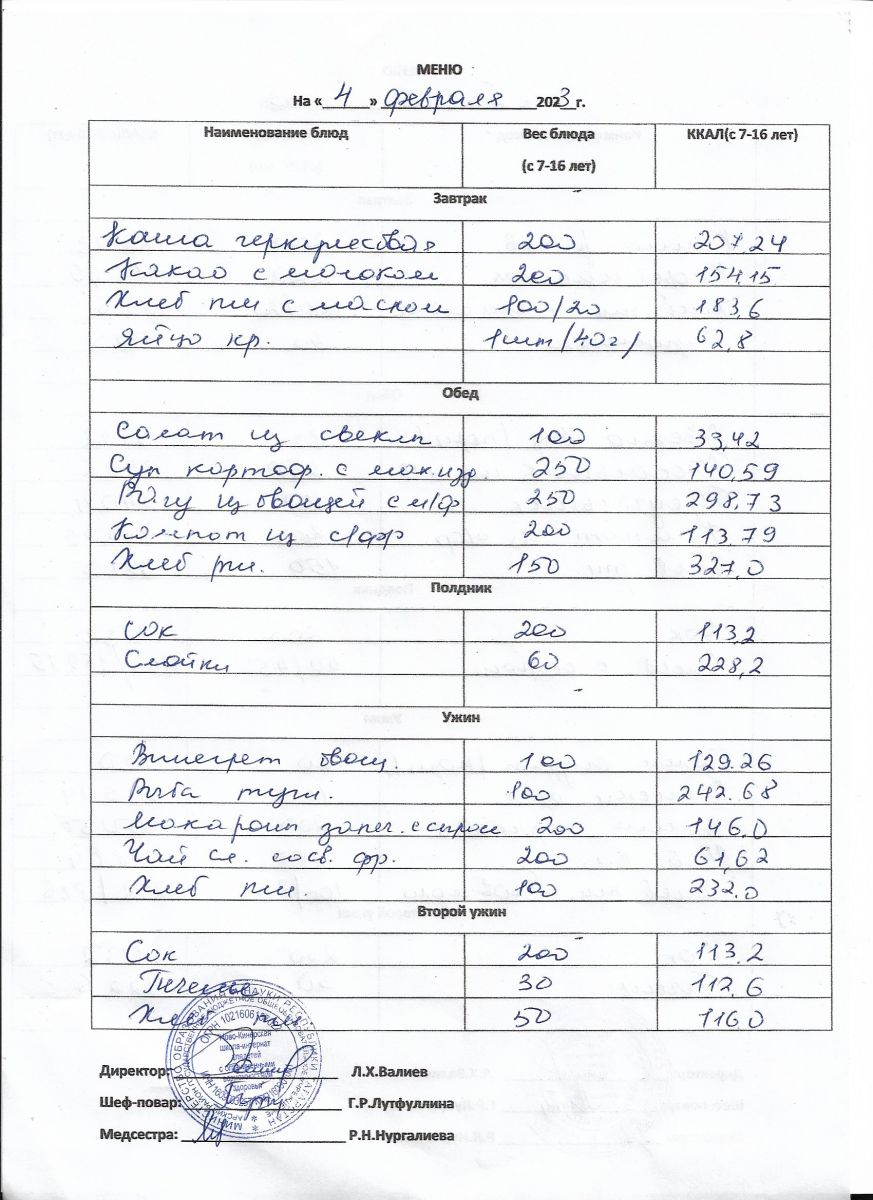 МЕНЮ
На « 4 » февраля 2023 г.
Наименование блюд Вес блюда (с 7-16 лет) ККАЛ(с 7-16 лет)
Завтрак
Каша геркулесовая 200 207.24
Какао с молоком 200 154,15
Хлеб пш с маслом 100/20 183,6
Яйцо кр. 1шт/40г/ 62,8
Обед
Салат из свеклы 100 33,42
Суп картоф. с мак.изд. 250 140,59
Рагу из овощей с м/ф 250 298,73
Компот из с/фр 200 113,79
Хлеб рж. 150 327,0
Полдник
Сок 200 113,2
Слойки 60 228,2
Ужин
Винегрет овощ. 100 129.26
Рыба туш. 100 242.68
Макароны запеч. с сыром 200 146.0
Чай сл. со св. фр. 200 61,62
Хлеб пш. 100 232.0
Второй ужин
Сок 200 113.2
Печенье 30 112.6
Хлеб 50 116.0
Директор: Л.Х.Валиев
Шеф-повар: Г.Р.Лутфуллина
Медсестра: Р.Н.Нургалиева